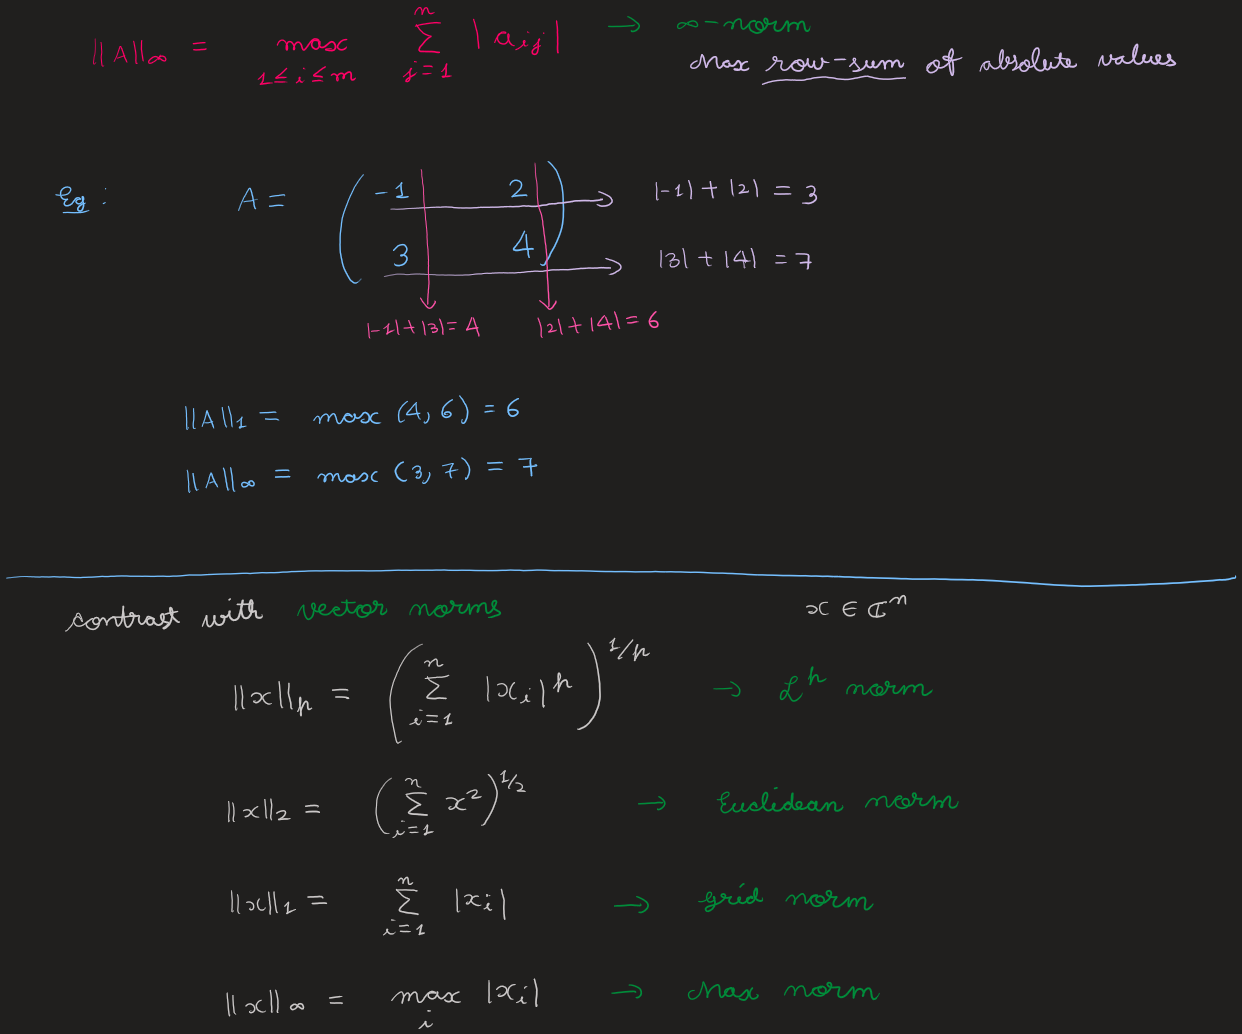 ||A||∞ = max 1≤i≤m n Σ j=1 |aij| → ∞-norm
Max row-sum of absolute values
Eg : A = ( -1 2 → |-1| + |2| = 3
3 4 ) → |3| + |4| = 7
|-1|+|3|= 4 |2|+|4|= 6
||A||1 = max (4, 6) = 6
||A||∞ = max (3, 7) = 7
contrast with vector norms x ∈ ℂ^n
||x||p = ( n Σ i=1 |xi|^p )^1/p → L^p norm
||x||2 = ( n Σ i=1 x^2 )^1/2 → Euclidean norm
||x||1 = n Σ i=1 |xi| → grid norm
||x||∞ = max i |xi| → Max norm